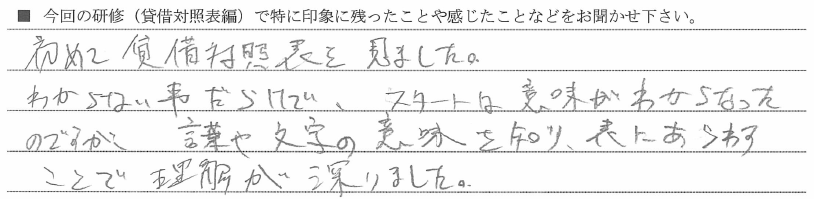 ■ 今回の研修（貸借対照表編）で特に印象に残ったことや感じたことなどをお聞かせ下さい。
初めて貸借対照表を見ました。
わからない事だらけで、スタートは意味がわからなった
のですが、言葉や文字の意味を知り、表にあらわす
ことで理解が深りました。